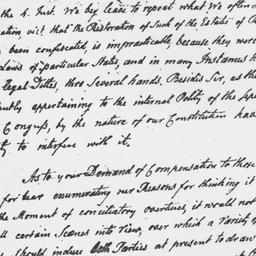 the 4. Inst. We beg leave to repeat what we often
ation, vizt that the Restoration of Such of the Estates of
been confiscated, is impracticable, because they were
Laws of particular States, and in many Instances h
legal Titles, thro' several hands. Besides Sir, as th
appertaining to the internal Polity of the
Congress, by the nature of our Constitution have
to interfere with it.
As to your Demand of Compensation to those
forbear enumerating our Reasons for thinking it
the Moment of conciliatory overtures, it would not
certain Scenes into View, over which a Variety of
should induce both Parties at present to draw